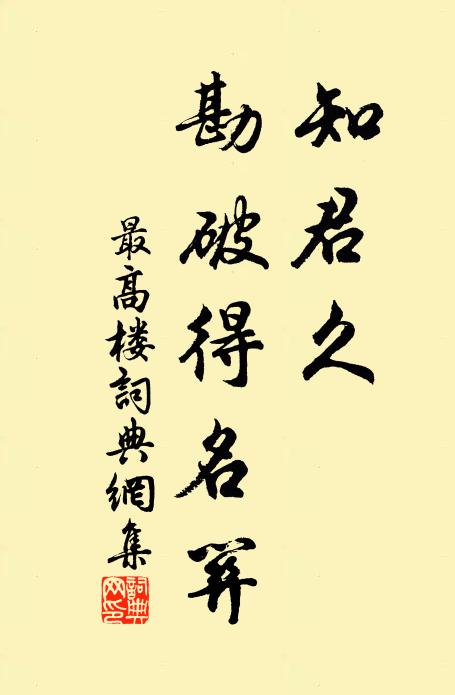 知君久
勘破得名關
最高楼詞典網集
詞典网印